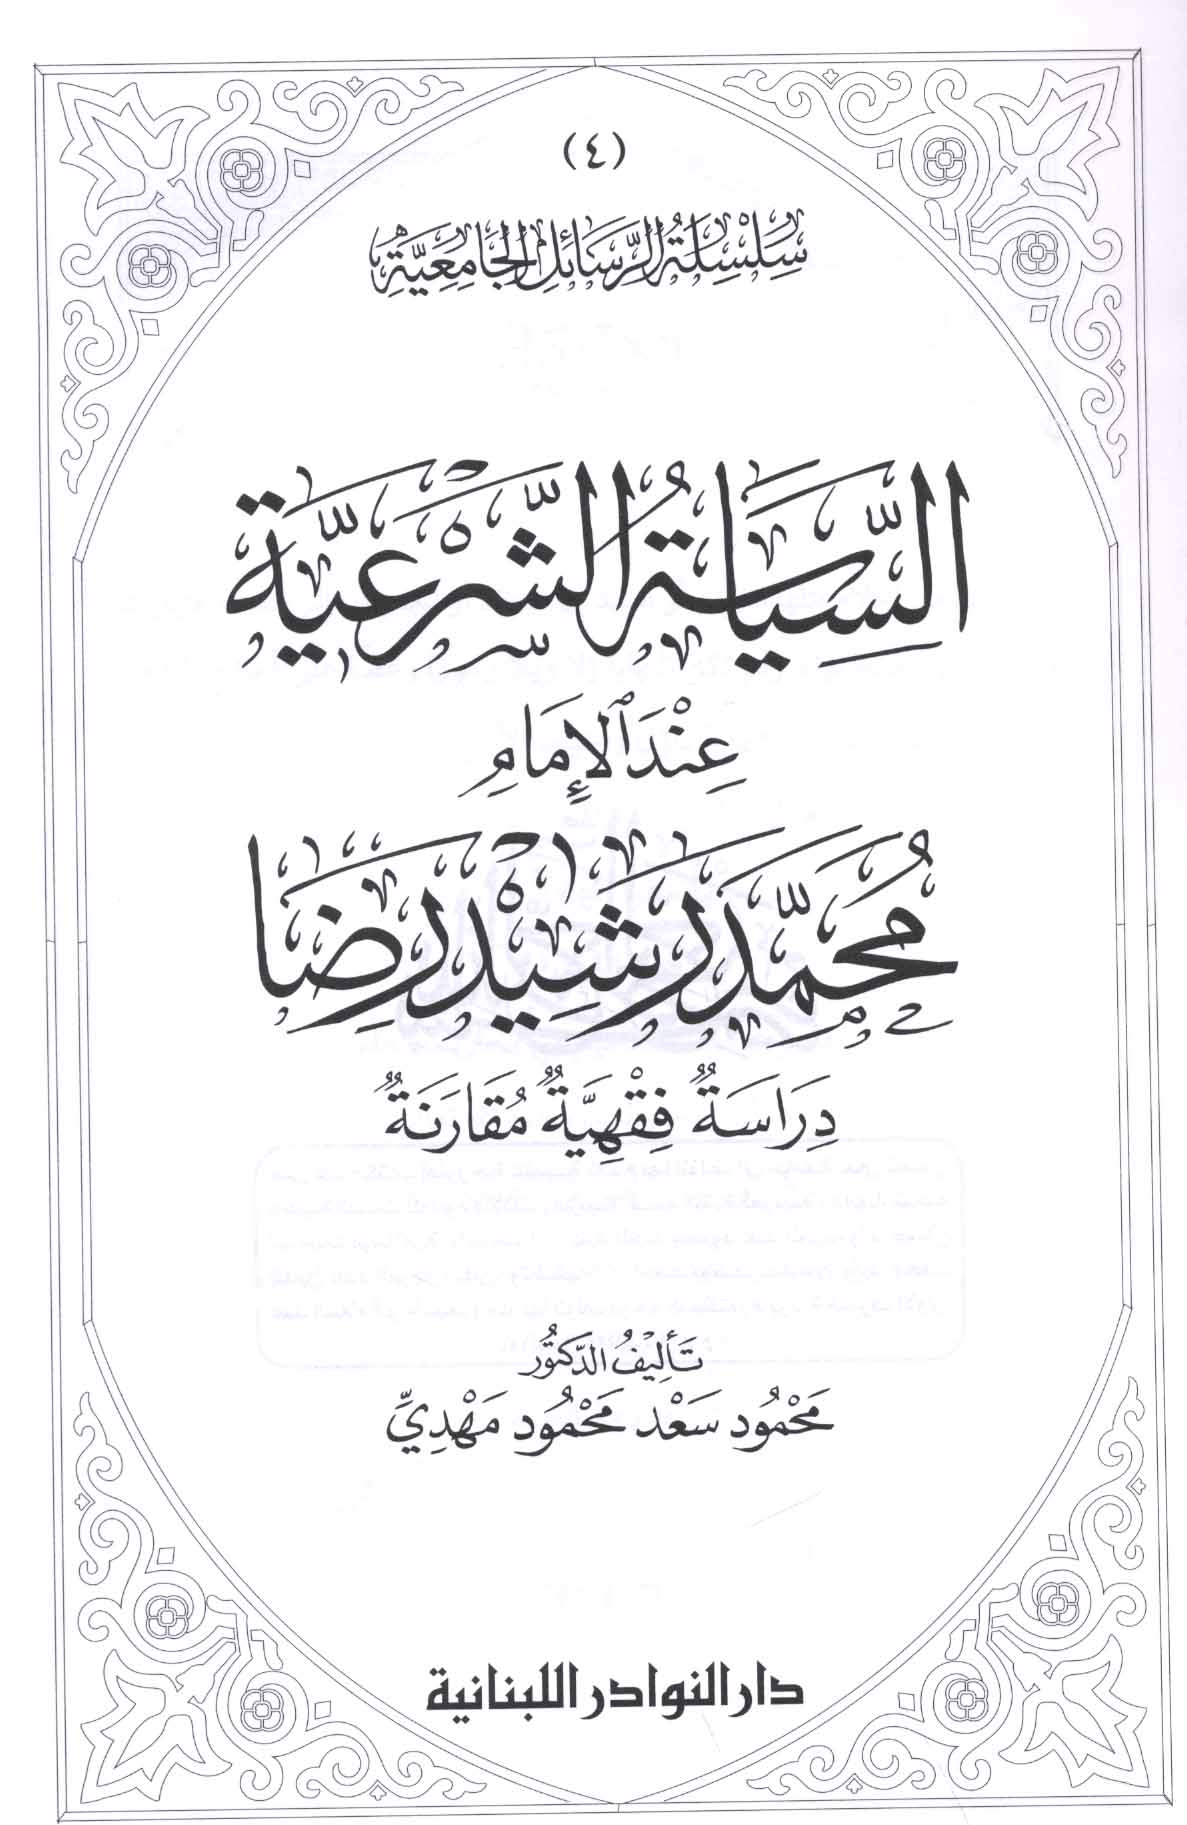 (٤)
سِلْسِلَةُ الرَّسَائِلِ الجَامِعِيَّةِ
السِّيَاسَةُ الشَّرْعِيَّةُ
عِنْدَ الإِمَامِ
مُحَمَّد رَشِيْد رِضَا
دِرَاسَةٌ فِقْهِيَّةٌ مُقَارَنَةٌ
تَأْلِيْفُ الدَّكْتُوْر
مَحْمُود سَعْد مَحْمُود مَهْدِيّ
دار النوادر اللبنانية